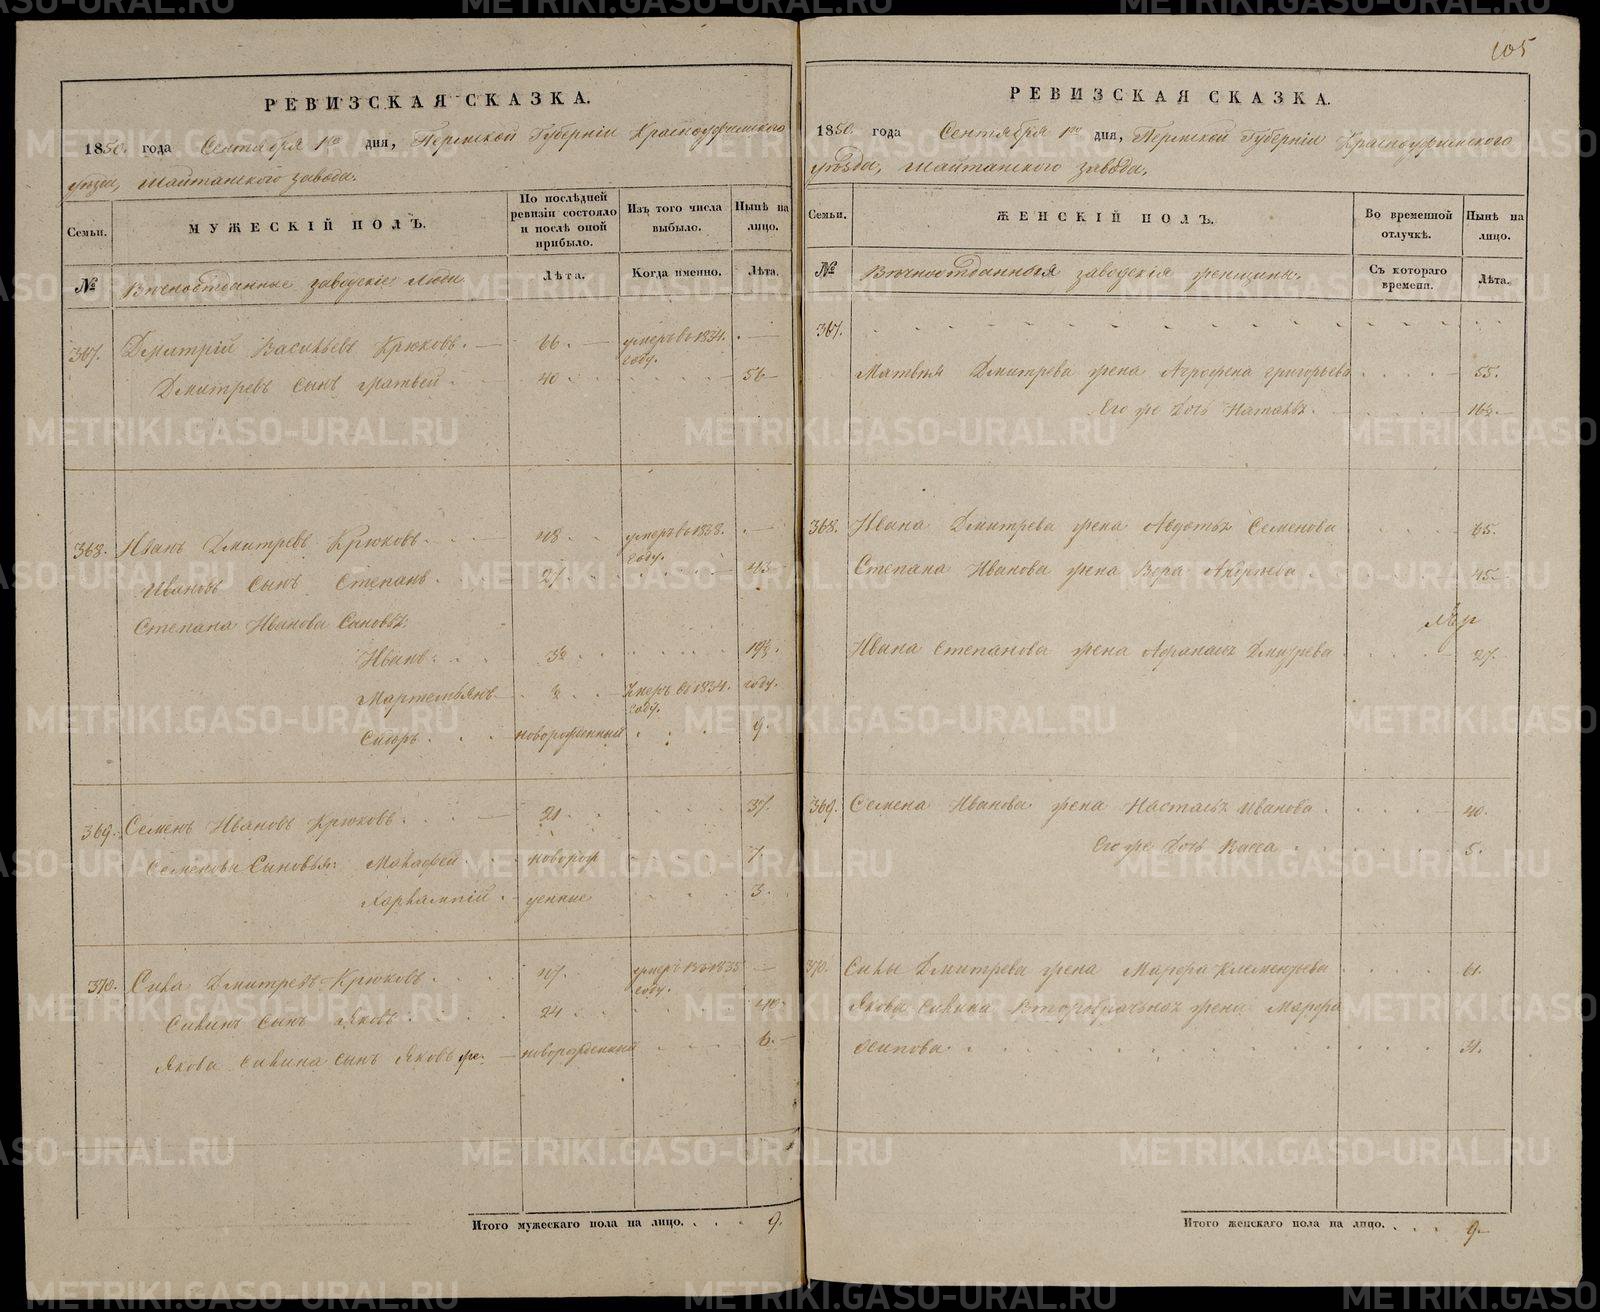 105
РЕВИЗСКАЯ СКАЗКА.
1850. года Сентября 1го дня, Пермской Губернiи Красноуфимского
уѣзда, Шайтанского завода.
Семьи.
МУЖЕСКIЙ ПОЛЪ.
По послѣдней ревизiи состояло и послѣ оной прибыло.
Изъ того числа выбыло.
Нынѣ на лицо.
№
Вѣчноотданные заводскiе люди
Лѣта.
Когда именно.
Лѣта.
367. Дмитрiй Васильевъ Крюковъ. 66. умеръ въ 1834. году.
Дмитревъ сынъ Матвей. 40 56
368. Иванъ Дмитревъ Крюковъ. 48 умеръ въ 1838. году.
Ивановъ Сынъ Степанъ. 27. 43
Степана Иванова Сыновья:
Иванъ. 19½
Мартемьянъ Умеръ въ 1834. году.
Сидоръ. новорожденный 9.
369. Семенъ Ивановъ Крюковъ. 21. 37.
Семенови Сыновья: Макафей новорож 7.
Харлампiй. денные 3.
370. Сила Дмитревъ Крюковъ. 47. умеръ въ 1835 году.
Силинъ Сынъ Яковъ. 24 40.
Якова Силина Сынъ Яковъ же. новорожденный 6.
Итого мужескаго пола на лицо. 9.
РЕВИЗСКАЯ СКАЗКА.
1850. года Сентября 1го дня, Пермской Губернiи Красноуфимского
уѣзда, Шайтанского завода.
Семьи.
ЖЕНСКIЙ ПОЛЪ.
Во временной отлучкѣ.
Нынѣ на лицо.
№
Вѣчноотданныя заводскiя женщины.
Съ котораго времени.
Лѣта.
367.
Матвѣя Дмитрева жена Агрофена Григорьева 55.
Его же Дочь Наталья. 16½
368. Ивана Дмитрева жена Авдотья Семенова 65.
Степана Иванова жена Вера Андреева 45.
Ивана Степанова жена Афанасья Дмитрева 27.
369. Семена Иванова жена Настасья Иванова 40.
Его же Дочь Васса 5.
370. Силы Дмитрева жена Марфа Клементьева 61.
Якова Силина Второбрачная жена Марфа
Осипова. 31.
Итого женскаго пола на лицо. 9
METRIKI.GASO-URAL.RU